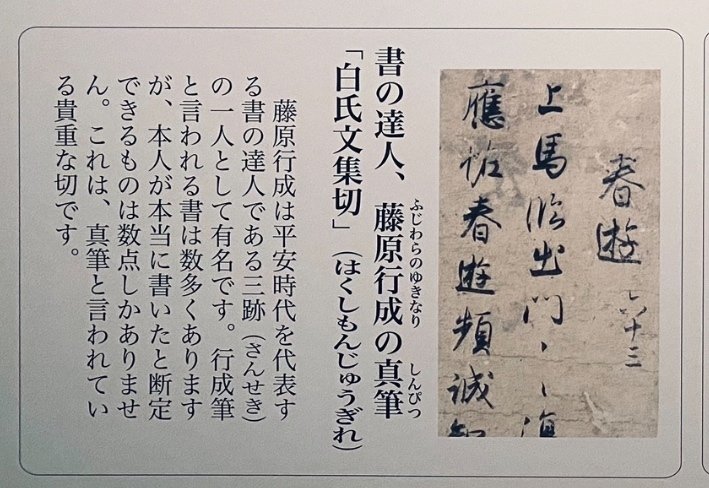 春遊
上馬臨出門ゝゝ
應恠春遊頻誠
ふじわらのゆきなり しんぴつ
書の達人、藤原行成の真筆
「白氏文集切」(はくしもんじゅうぎれ)
藤原行成は平安時代を代表す
る書の達人である三跡(さんせき)
の一人として有名です。行成筆
と言われる書は数多くあります
が、本人が本当に書いたと断定
できるものは数点しかありませ
ん。これは、真筆と言われてい
る貴重な切です。